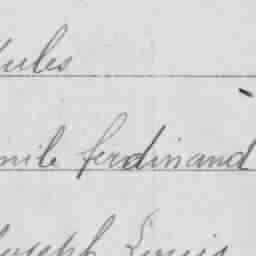 Jules
Emile ferdinand
Joseph Louis